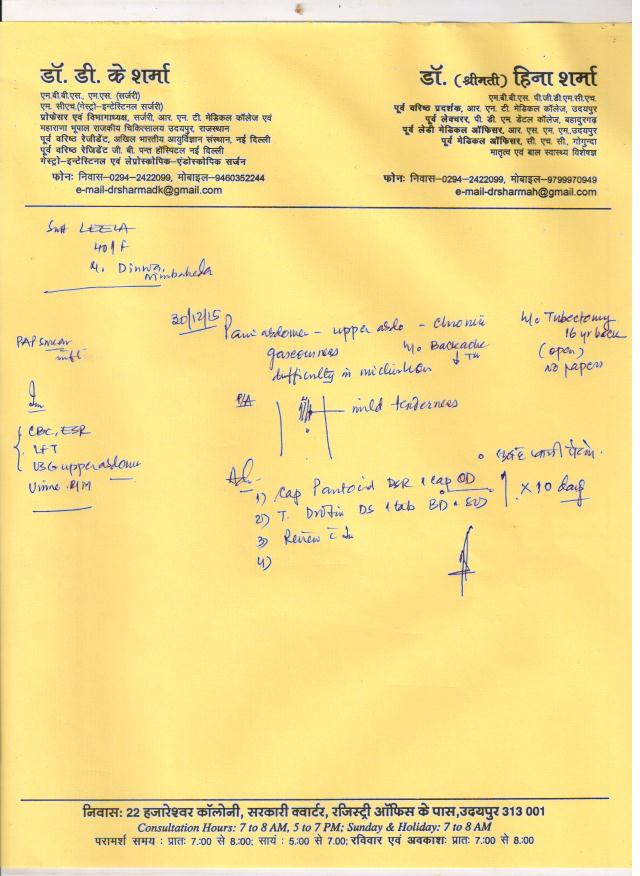 डॉ. डी. के शर्मा
एम.बी.बी.एस., एम.एस. (सर्जरी)
एम. सीएच.(गेस्ट्रो-इन्टेस्टिनल सर्जरी)
प्रोफेसर एवं विभागाध्यक्ष, सर्जरी, आर. एन. टी. मेडिकल कॉलेज एवं
महाराणा भूपाल राजकीय चिकित्सालय उदयपुर, राजस्थान
पूर्व वरिष्ठ रेजीडेंट, अखिल भारतीय आयुर्विज्ञान संस्थान, नई दिल्ली
पूर्व वरिष्ठ रेजिडेंट जी. बी. पन्त हॉस्पिटल नई दिल्ली
गेस्ट्रो-इन्टेस्टिनल एवं लेप्रोस्कोपिक-एंडोस्कोपिक सर्जन
फोनः निवास-0294-2422099, मोबाइल-9460352244
e-mail-drsharmadk@gmail.com
डॉ. (श्रीमती) हिना शर्मा
एम.बी.बी.एस पी.जी.डी.एम.सी.एच.
पूर्व वरिष्ठ प्रदर्शक, आर. एन. टी. मेडिकल कॉलेज, उदयपुर
पूर्व लेक्चरर, पी. डी. एम. डेंटल कॉलेज, बहादुरगढ़
पूर्व लेडी मेडिकल ऑफिसर, आर. एस. एम. एम.,उदयपुर
पूर्व मेडिकल ऑफिसर, सी. एच. सी., गोगुन्दा
मातृत्व एवं बाल स्वास्थ्य विशेषज्ञ
फोनः निवास-0294-2422099, मोबाइल-9799970949
e-mail-drsharmah@gmail.com
Smt LEELA
40/F
Nimbaheda
30/12/15
Pain abdomen - upper abdo - chronic
gaseousness
H/o Backache
difficulty in micturition
H/o Tubectomy
16 yr back
(open)
No papers
PAP smear
P/A
mild tenderness
CBC, ESR
LFT
USG upper abdomen
Urine R/M
Adv
1) Cap Pantocid DSR 1 cap OD
2) T. Drotin DS 1 tab BD
x 10 days
3) Review
4)
निवास: 22 हजारेश्वर कॉलोनी, सरकारी क्वार्टर, रजिस्ट्री ऑफिस के पास,उदयपुर 313 001
Consultation Hours: 7 to 8 AM, 5 to 7 PM; Sunday & Holiday: 7 to 8 AM
परामर्श समय : प्रातः 7.:00 से 8.:00; सायं : 5.:00 से 7.00; रविवार एवं अवकाशः प्रातः 7.:00 से 8.:00